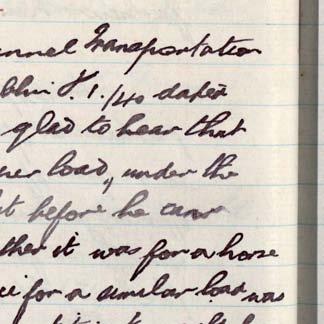 nnel Transportation
1/40 dated
glad to hear that
load, under the
before he came
ther it was for a horse
for a similar load was